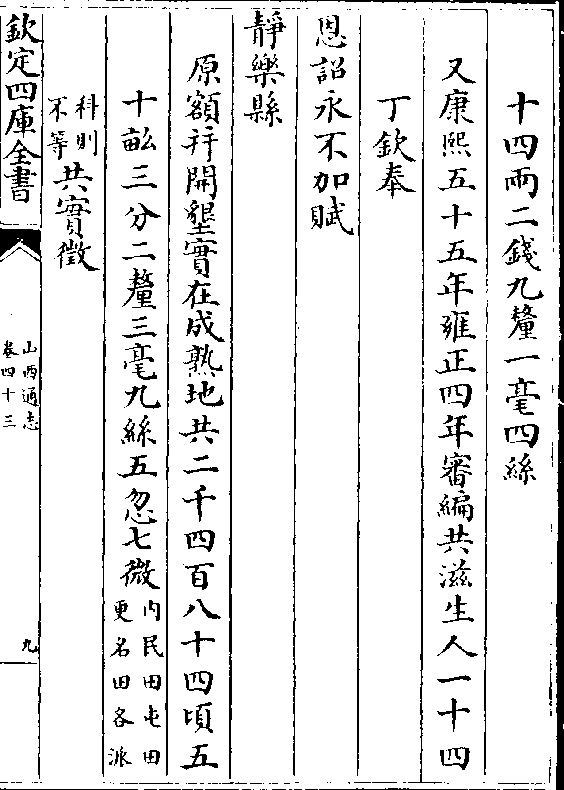 十四兩二錢九釐一毫四絲
又康熙五十五年雍正四年審編共滋生人一十四
丁欽奉
恩詔永不加賦
靜樂縣
原額并開墾實在成熟地共二千四百八十四頃五
十畝三分二釐三毫九絲五忽七微內民田屯田更名田各派
科則不等共實徵
欽定四庫全書
山西通志
卷四十三
九